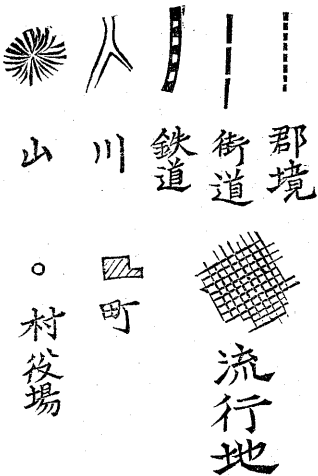 郡境
街道
鉄道
川
山
流行地
町
村役場